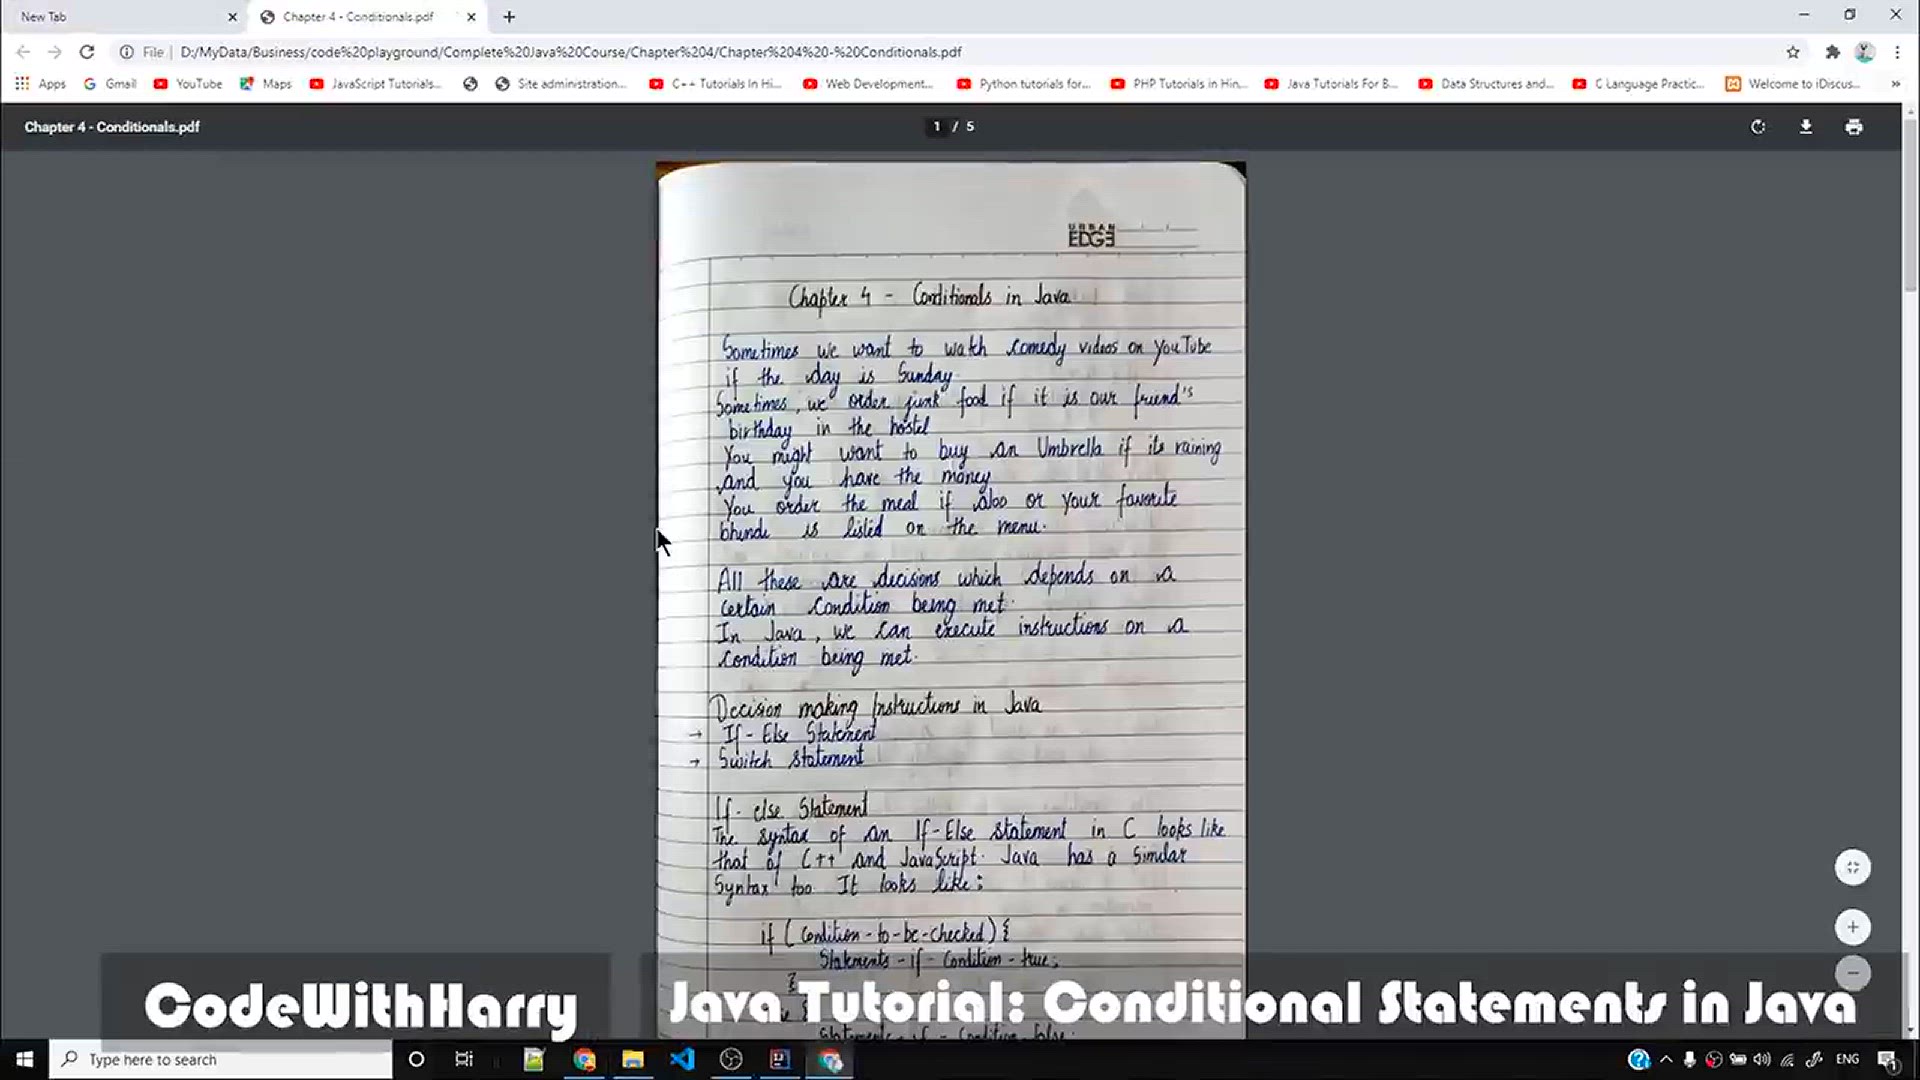 New Tab
Chapter 4 - Conditionals.pdf
File | D:/MyData/Business/code%20playground/Complete%20Java%20Course/Chapter%204/Chapter%204%20-%20Conditionals.pdf
Apps Gmail YouTube Maps JavaScript Tutorials... Site administration... C++ Tutorials In Hi... Web Development... Python tutorials for... PHP Tutorials in Hin... Java Tutorials For B... Data Structures and... C Language Practic... Welcome to iDiscus... »
Chapter 4 - Conditionals.pdf 1 / 5
URBAN
EDGE
Chapter 4 - Conditionals in Java
Sometimes we want to watch comedy videos on YouTube
if the day is Sunday.
Sometimes, we order junk food if it is our friend's
birthday in the hostel
You might want to buy an Umbrella if its raining
and you have the money
You order the meal if aloo or your favorite
bhindi is listed on the menu.
All these are decisions which depends on a
certain condition being met.
In Java, we can execute instructions on a
condition being met.
Decision making Instructions in Java
→ If - Else Statement
→ Switch Statement
If - else Statement
The syntax of an If-Else statement in C looks like
that of C++ and JavaScript. Java has a similar
Syntax too It looks like:
if (Condition-to-be-checked) {
Statements-if-Condition-true;
}
{
Statements-if-Condition-false;
CodeWithHarry
Java Tutorial: Conditional Statements in Java
Type here to search
ENG